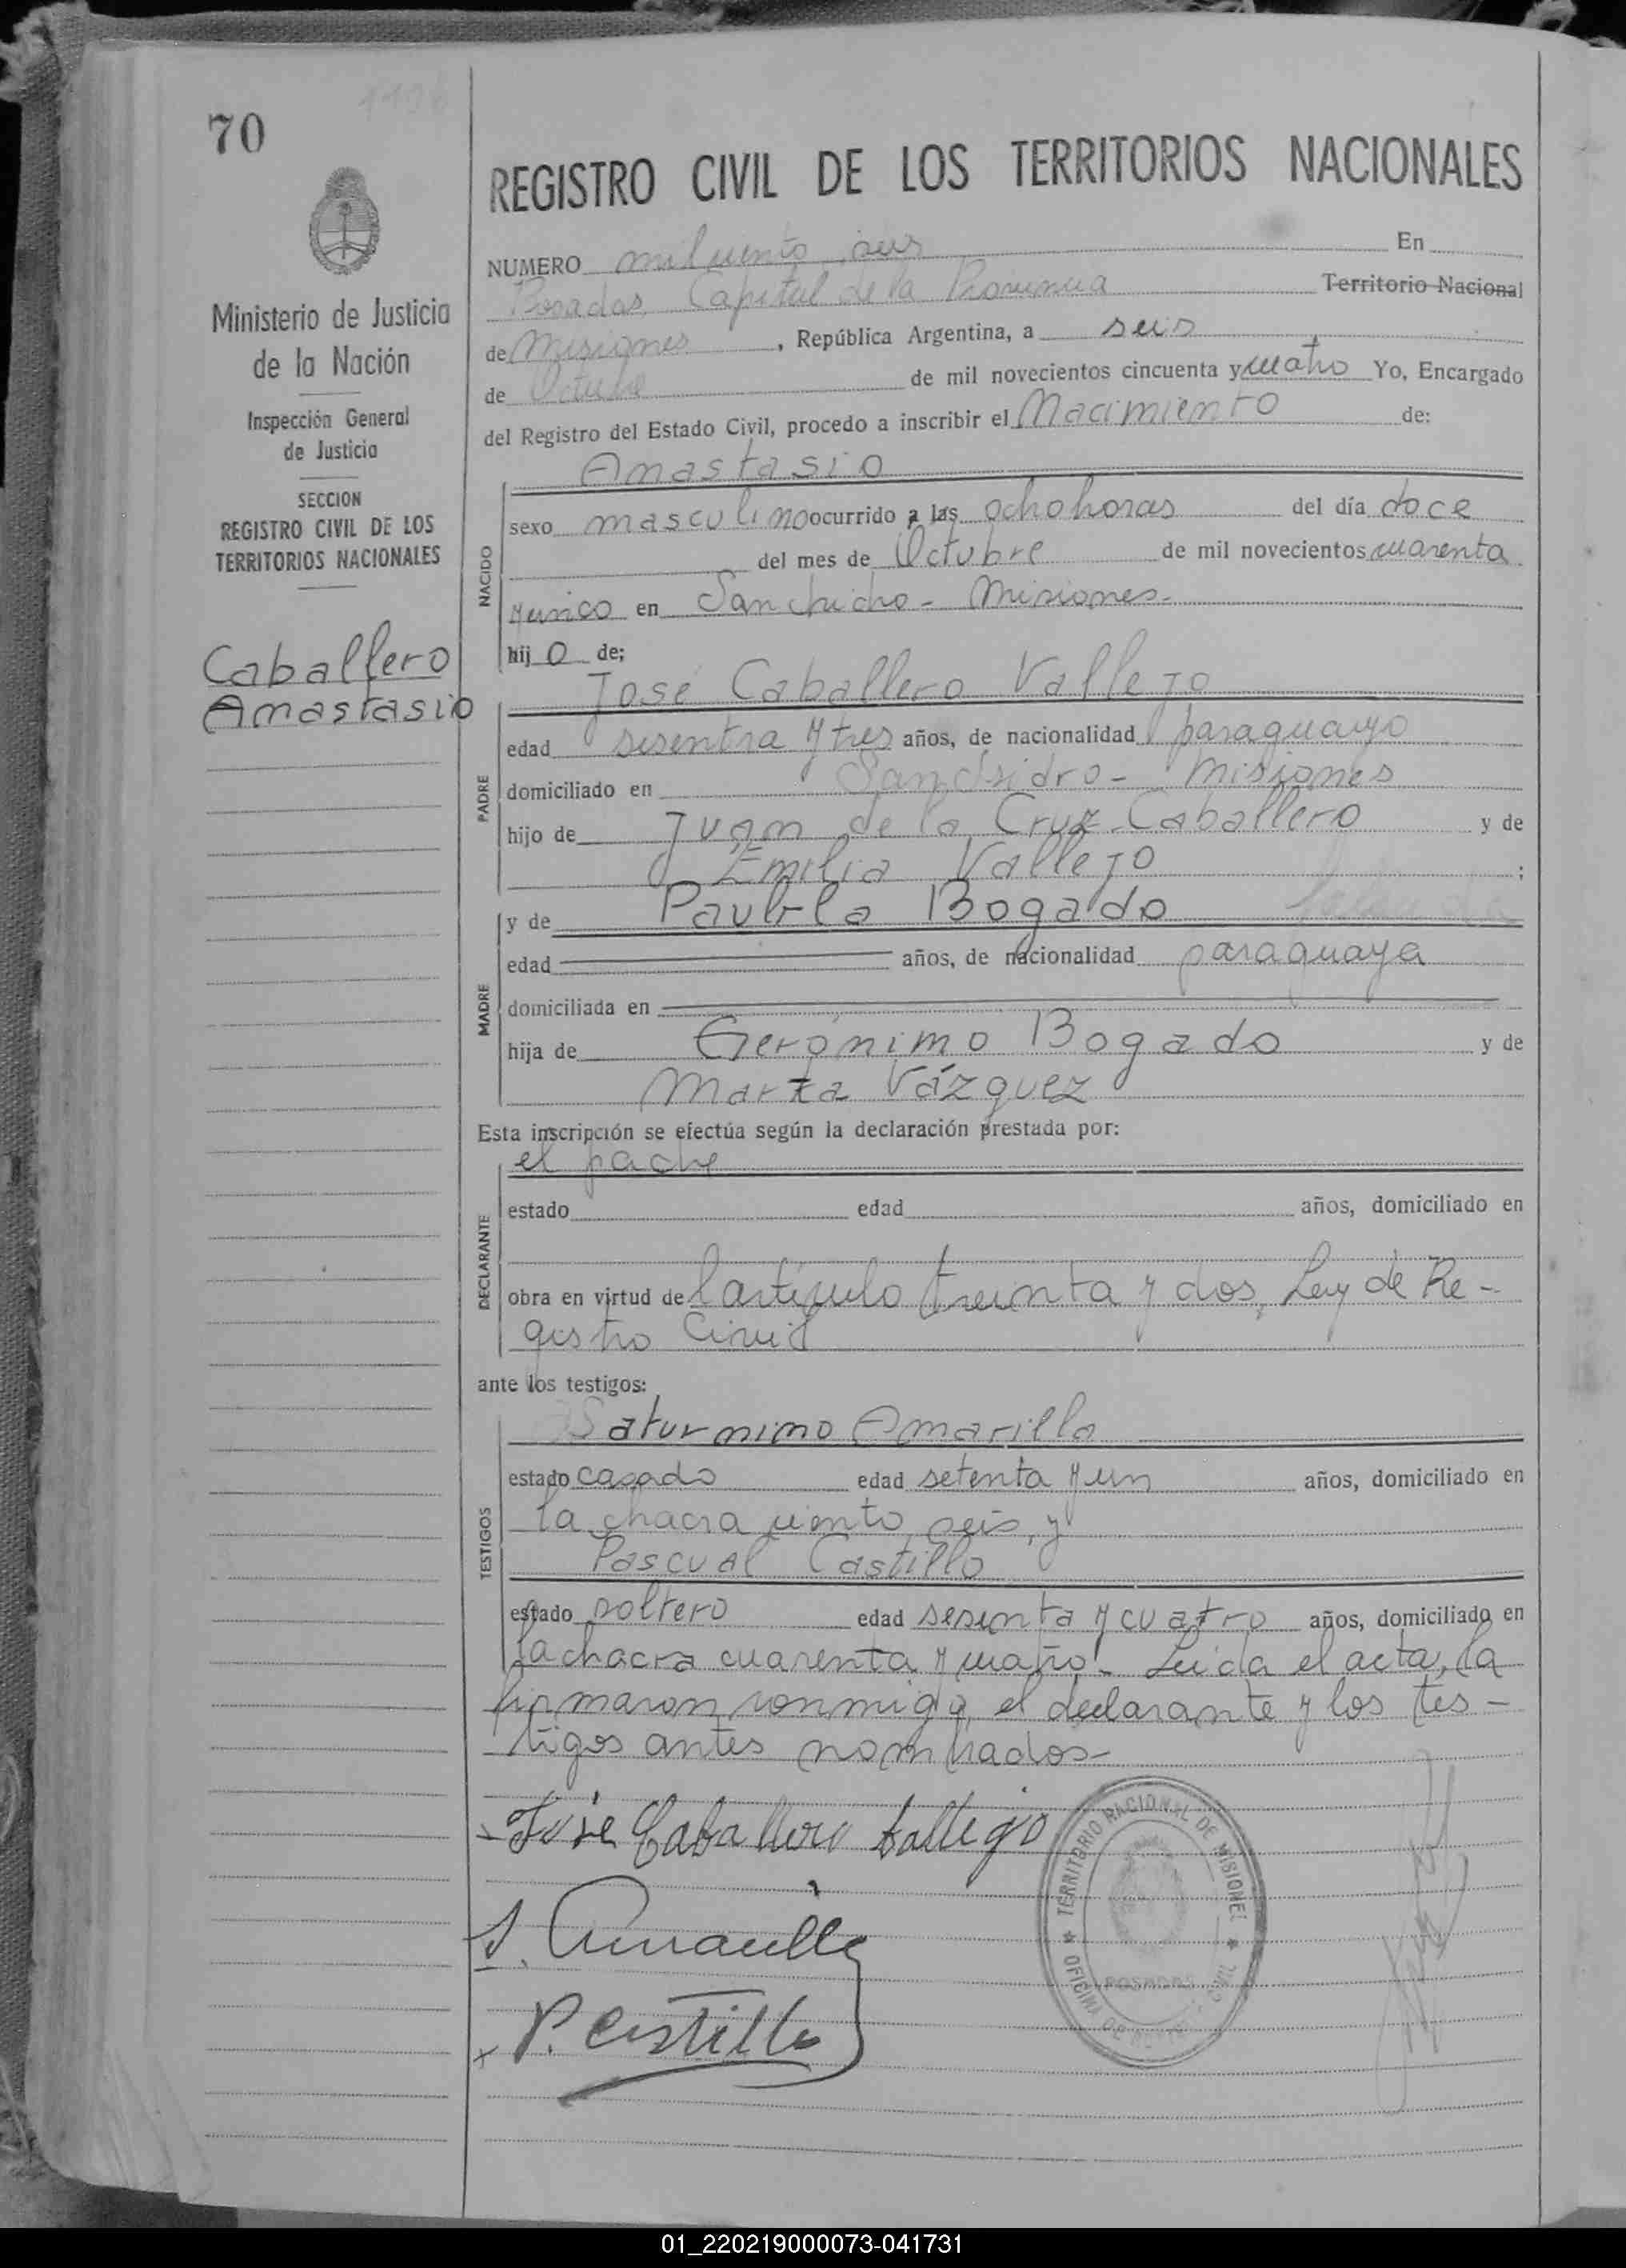 70
1106
Ministerio de Justicia
de la Nación
Inspección General
de Justicia
SECCION
REGISTRO CIVIL DE LOS
TERRITORIOS NACIONALES
Caballero
Anastasio
REGISTRO CIVIL DE LOS TERRITORIOS NACIONALES
NUMERO mil ciento seis En
Posadas, Capital de la Provincia Territorio Nacional
de Misiones, República Argentina, a seis
de Octubre de mil novecientos cincuenta y cuatro Yo, Encargado
del Registro del Estado Civil, procedo a inscribir el Nacimiento de:
Anastasio
NACIDO
sexo masculino ocurrido a las ocho horas del día doce
del mes de Octubre de mil novecientos cuarenta
y cinco en San Chicho - Misiones-
hijo de;
José Caballero Vallejo
PADRE
edad sesentra y tres años, de nacionalidad paraguayo
domiciliado en San Isidro - Misiones
hijo de Juan de la Cruz Caballero y de
Emilia Vallejo ;
y de Bogado
MADRE
edad años, de nacionalidad paraguaya
domiciliada en
hija de Gerónimo Bogado y de
Marta Vázquez
Esta inscripción se efectúa según la declaración prestada por:
el padre
DECLARANTE
estado edad años, domiciliado en
obra en virtud del artículo treinta y dos, Ley de Re-
gistro Civil
ante los testigos:
Saturnino Amarilla
TESTIGOS
estado casado edad setenta y un años, domiciliado en
la chacra ciento seis, y
Pascual Castillo
estado soltero edad sesenta y cuatro años, domiciliado en
la chacra cuarenta y cuatro.- Leída el acta, la
firmaron conmigo, el declarante y los tes-
tigos antes nombrados-
José Caballero Vallejo
S. Amarilla
P. Castillo
TERRITORIO NACIONAL DE MISIONES
OFICINA DE CIVIL
POSADAS
01_220219000073-041731